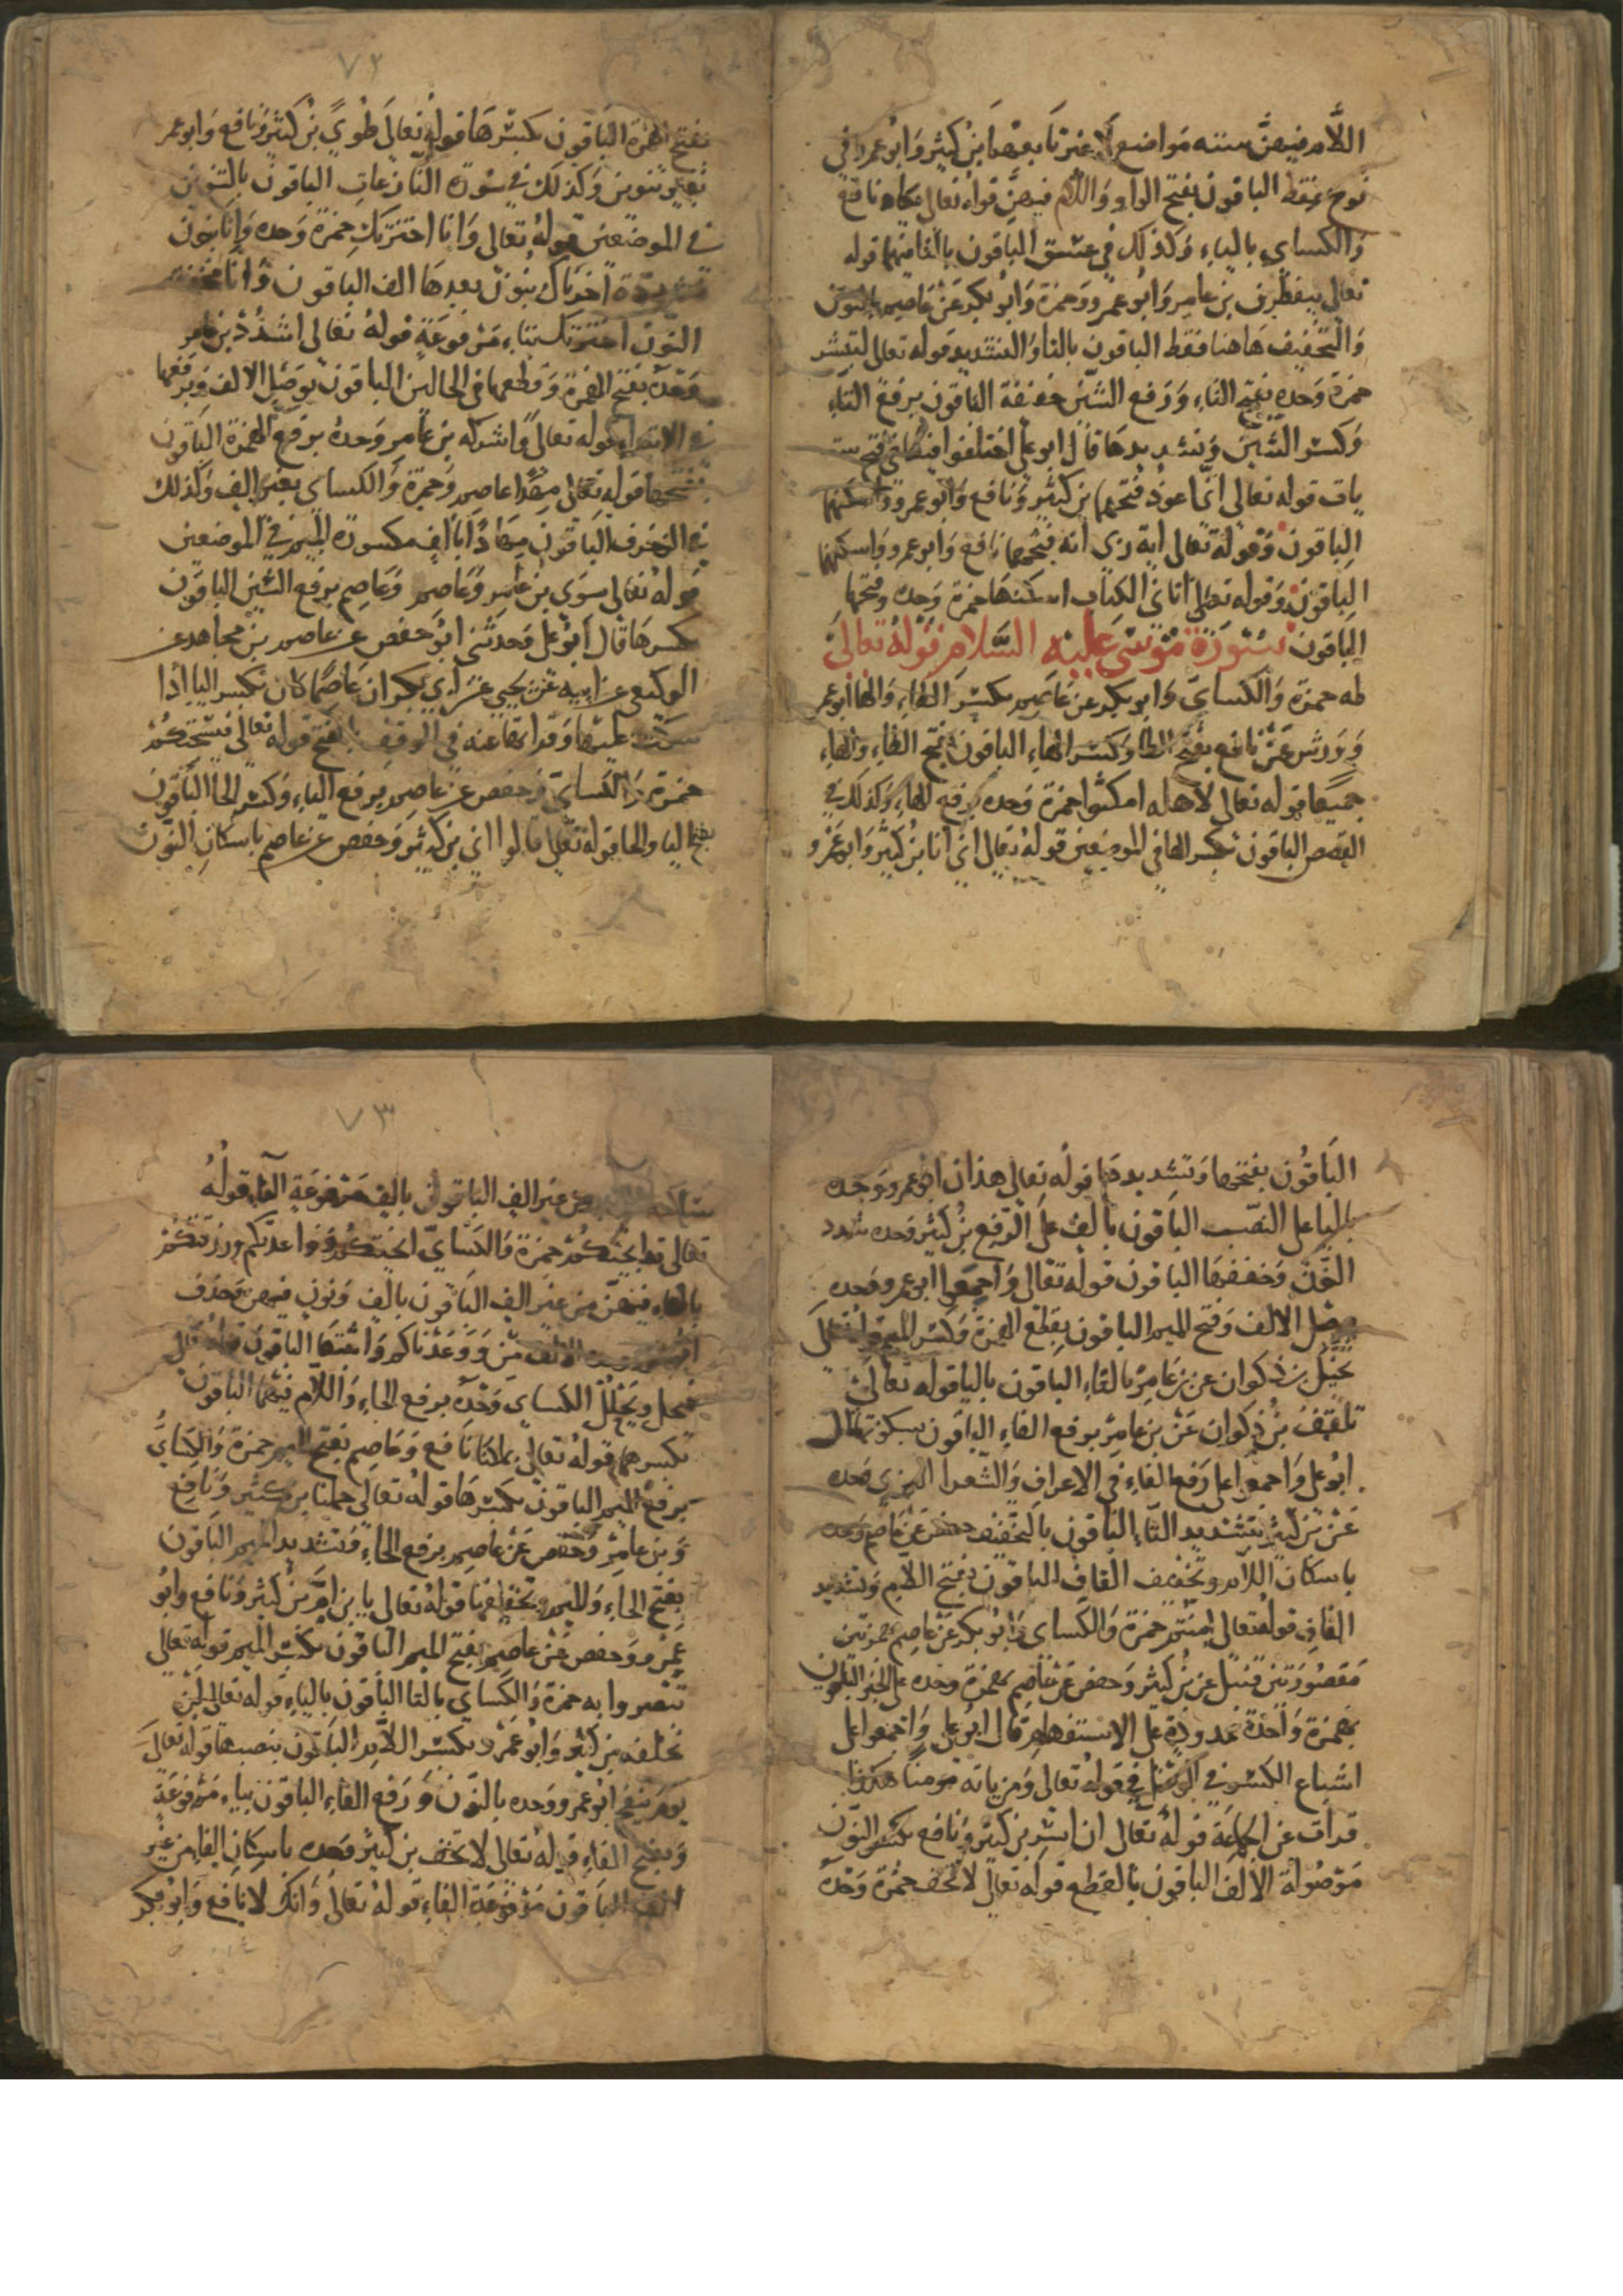 اللَّام فيهنَّ ستته مواضع لا غير تابعهما بن كثير وابو عمرو في
نوح فقط الباقون بفتح الواو واللام فيهن قوله تعالى تكاد نافع
والكساي بالياء وكذلك في عسق الباقون بالتا فيهما قوله
تعالى ينفطرن بن عامر وابو عمرو وحمزة وابو بكر عن عاصم بالنون
والتخفيف هاهنا فقط الباقون بالتا والتشديد قوله تعالى لتبشر
حمزة وحده بفتح التاء ورفع الشين خفيفة الباقون برفع التاء
وكسر الشين وتشديدها قال ابو علي اختلفوا فيها في فتح ست
يات قوله تعالى انى اعوذ فتحهما بن كثير ونافع وابو عمرو واسكنها
الباقون وقوله تعالى اية ربى انه فتحهما نافع وابو عمرو واسكنهما
الباقون وقوله تعالى اتاني الكتاب اسكنها حمزة وحده وفتحها
الباقون سورة موسى عليه السلام قوله تعالى
طه حمزة والكساي وابو بكر عن عاصم بكسر الطاء والها ابو عمر
وورش عن نافع بفتح الطا وكسر الهاء الباقون بفتح الطاء والهاء
جميعا قوله تعالى لاهله امكثوا حمزة وحده برفع الهاء وكذلك في
القصص الباقون بكسر الها في الموضعين قوله تعالى اني انا بن كثير وابو عمرو
٧٢
بفتح الهمزة الباقون بكسرها قوله تعالى طوى بن كثير ونافع وابو عمر
بغير تنوين وكذلك في سورة النازعات الباقون بالتنوين
في الموضعين قوله تعالى وانا اخترتك حمزة وحده وانا بنون
مشددة اخترناك بنون بعدها الف الباقون وانا مخففة
النون اخترتك بتاء مرفوعة قوله تعالى اشدد بن عامر
وحده بفتح الهمزة وقطعها في الحالين الباقون بوصل الالف ويرفعها
في الابتداء قوله تعالى واشركه بن عامر وحده برفع الهمزة الباقون
بفتحها قوله تعالى مهدا عاصم وحمزة والكساي بغير الف وكذلك
في الزخرف الباقون مهادا بالف مكسورة الميم في الموضعين
قوله تعالى سوى بن عامر وعاصم وعاصم برفع السين الباقون
كسرها قال ابو علي وحدثنى ابو حفص عن عاصم بن مجاهد عن
الوكيعي عن ابيه عن يحيى عن ابي بكر ان عاصما كان يكسر اليا اذا
سكت عليها وقرا بقا عنه في الوقف بالفتح قوله تعالى فيسحتكم
حمزة والكساي وحفص عن عاصم برفع الياء وكسر الحا الباقون
بفتح اليا والحا قوله تعالى قالوا ان بن كثير وحفص عن عاصم باسكان النون
الباقون بفتحها وتشديدها قوله تعالى هذان ابو عمرو وحده
باليا على النصب الباقون بالف على الرفع بن كثير وحده شدد
النون وخففها الباقون قوله تعالى واجمعوا ابو عمرو وحده
بوصل الالف وفتح الميم الباقون بقطع الهمزة وكسر الميم قوله تعالى
يخيل بن ذكوان عن بن عامر بالتاء الباقون باليا قوله تعالى
تلقف بن ذكوان عن بن عامر برفع الفاء الباقون بسكونها قال
ابو علي واجمعوا على رفع الفاء في الاعراف والشعرا البزي وحده
عن بن كثير بتشديد التاء الباقون بالتخفيف حفص عن عاصم وحده
باسكان اللام وتخفيف القاف الباقون بفتح اللام وتشديد
القاف قوله تعالى امنتم حمزة والكساي وابو بكر عن عاصم بهمزتين
مقصورتين قنبل عن بن كثير وحفص عن عاصم بهمزة وحده على الخبر الباقون
بهمزة واحدة ممدودة على الاستفهام قال ابو علي واجمعوا على
اشباع الكسر في الوصل في قوله تعالى ومن ياته مومنا هكذا
قرات عن الجماعة قوله تعالى ان اسر بن كثير ونافع بكسر النون
موصولة الالف الباقون بالقطع قوله تعالى لا تخف حمزة وحده
٧٣
من غير الف الباقون بالف مرفوعة الفاء قوله
تعالى قد انجيتكم حمزة والكساي انجيتكم وواعدتكم ورزقتكم
بالتاء فيهن من غير الف الباقون بالف ونون فيهن وحذف
ابو عمرو الالف من ووعدناكم واثبتها الباقون قوله تعالى
فيحل ويحلل الكساي وحده برفع الحاء واللام فيهما الباقون
بكسرهما قوله تعالى بملكنا نافع وعاصم بفتح الميم حمزة والكساي
برفع الميم الباقون بكسرها قوله تعالى حملنا بن كثير ونافع
وبن عامر وحفص عن عاصم برفع الحاء وتشديد الميم الباقون
بفتح الحاء والميم وتخفيفها قوله تعالى يا بن ام بن كثير ونافع وابو
عمرو وحفص عن عاصم بفتح الميم الباقون بكسر الميم قوله تعالى
تبصروا به حمزة والكساي بالتا الباقون بالياء قوله تعالى لن
تخلفه بن كثير وابو عمرو بكسر اللام الباقون بنصبها قوله تعالى
يوم ينفخ ابو عمرو وحده بالنون ورفع الفاء الباقون بياء مرفوعة
وبفتح الفاء قوله تعالى لا تخف بن كثير وحده باسكان الفا من غير
الف الباقون مرفوعة الفاء قوله تعالى وانك لا نافع وابو بكر